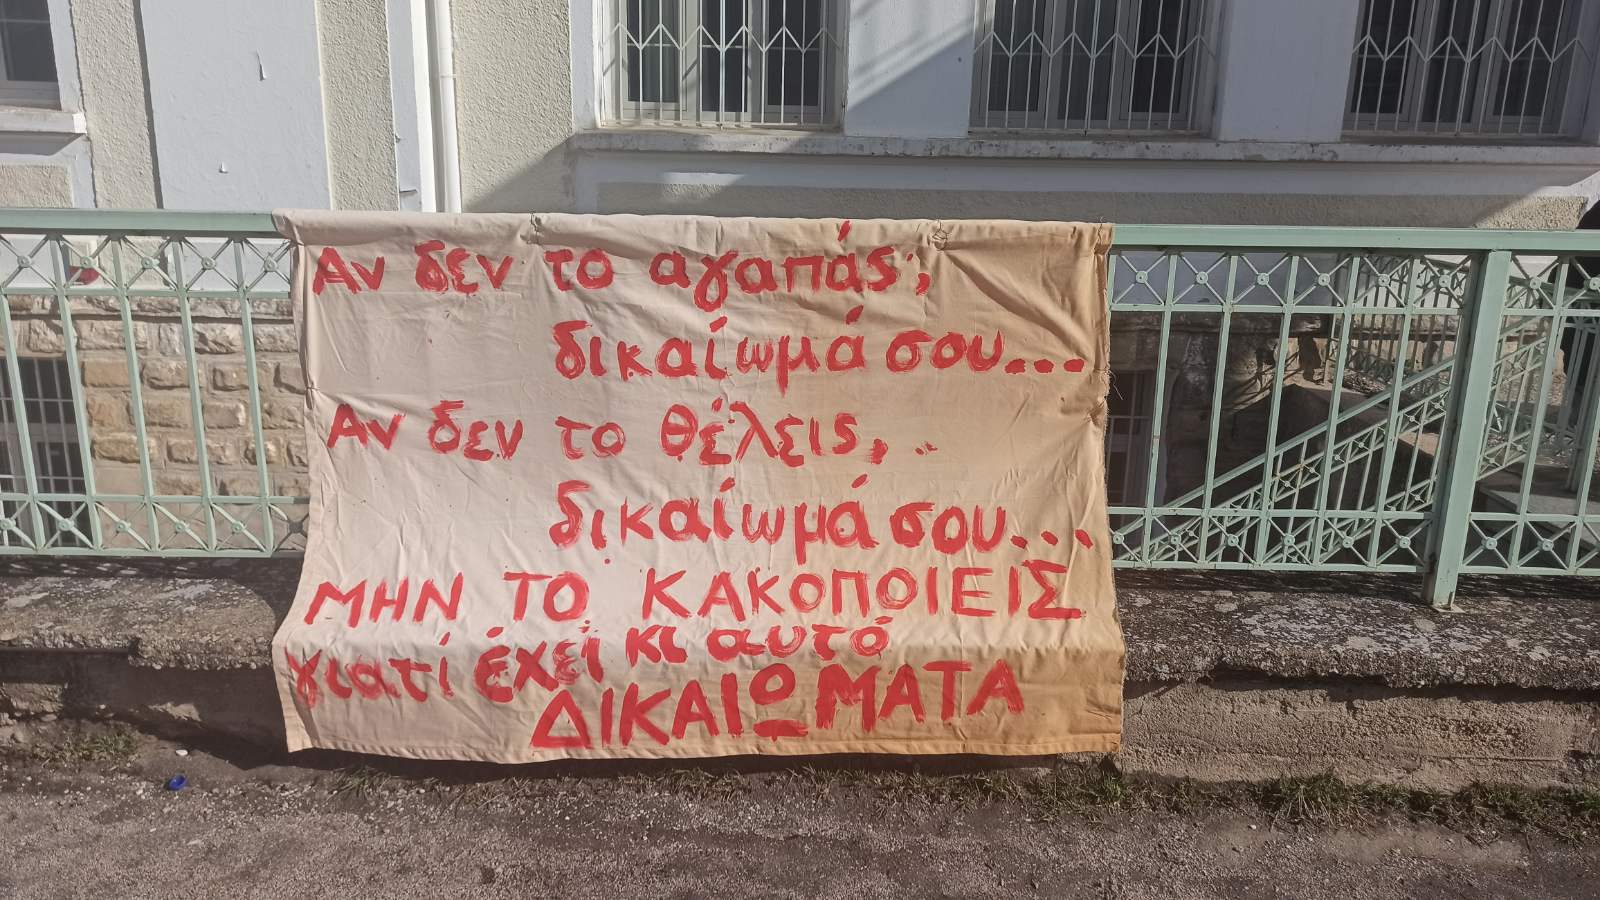 Αν δεν το αγαπάς;
δικαίωμά σου...
Αν δεν το θέλεις,..
δικαίωμά σου...
ΜΗΝ ΤΟ ΚΑΚΟΠΟΙΕΙΣ
γιατί έχει κι αυτό
ΔΙΚΑΙΩΜΑΤΑ